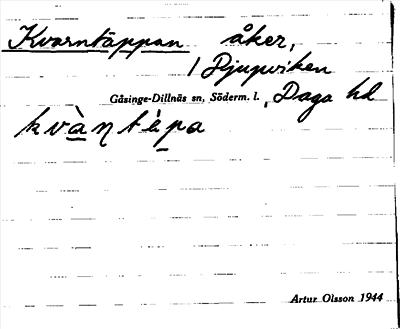 Kvarntäppan åker,
1 Djupviken
Gåsinge-Dillnäs sn, Söderm. l., Daga hd
kvàṇtȧpa
Artur Olsson 1944